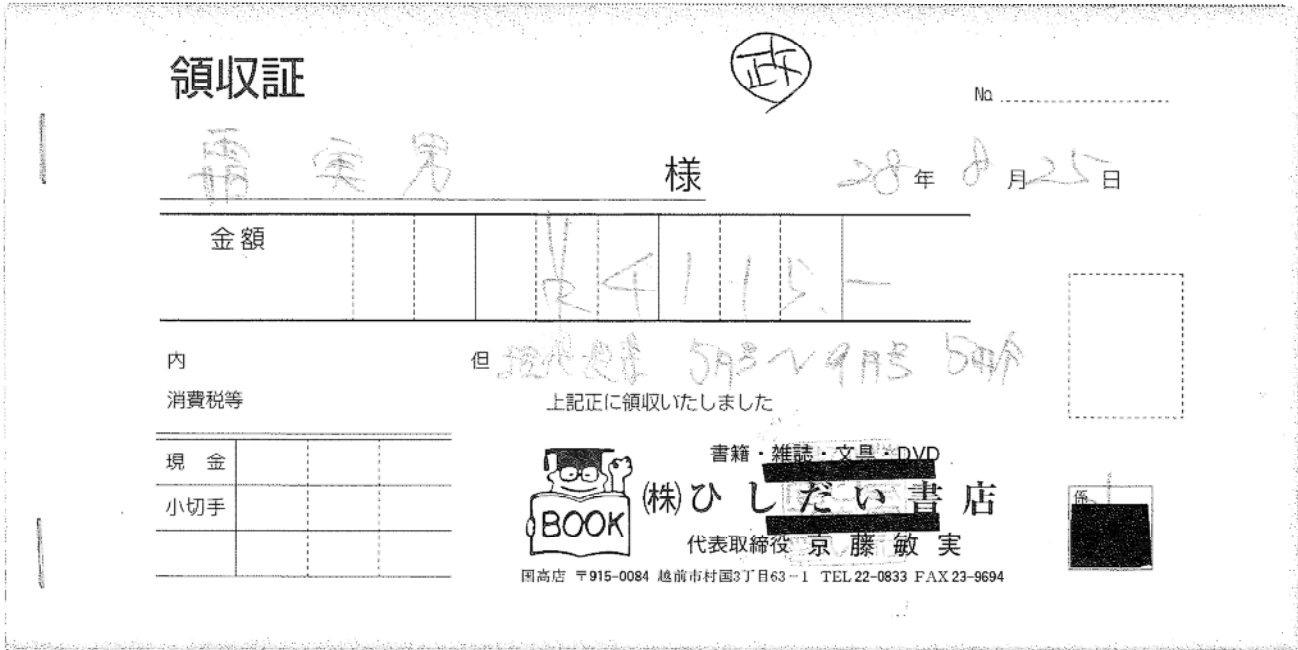 領収証
政
No
実男 様 28年 8月25日
金額 ¥4115.-
内 但 5月号〜9月号
消費税等 上記正に領収いたしました
現金
小切手
書籍・雑誌・文具・DVD
BOOK
(株)ひしだい書店
代表取締役 京藤敏実
国高店 〒915-0084 越前市村国3丁目63-1 TEL 22-0833 FAX 23-9694
係